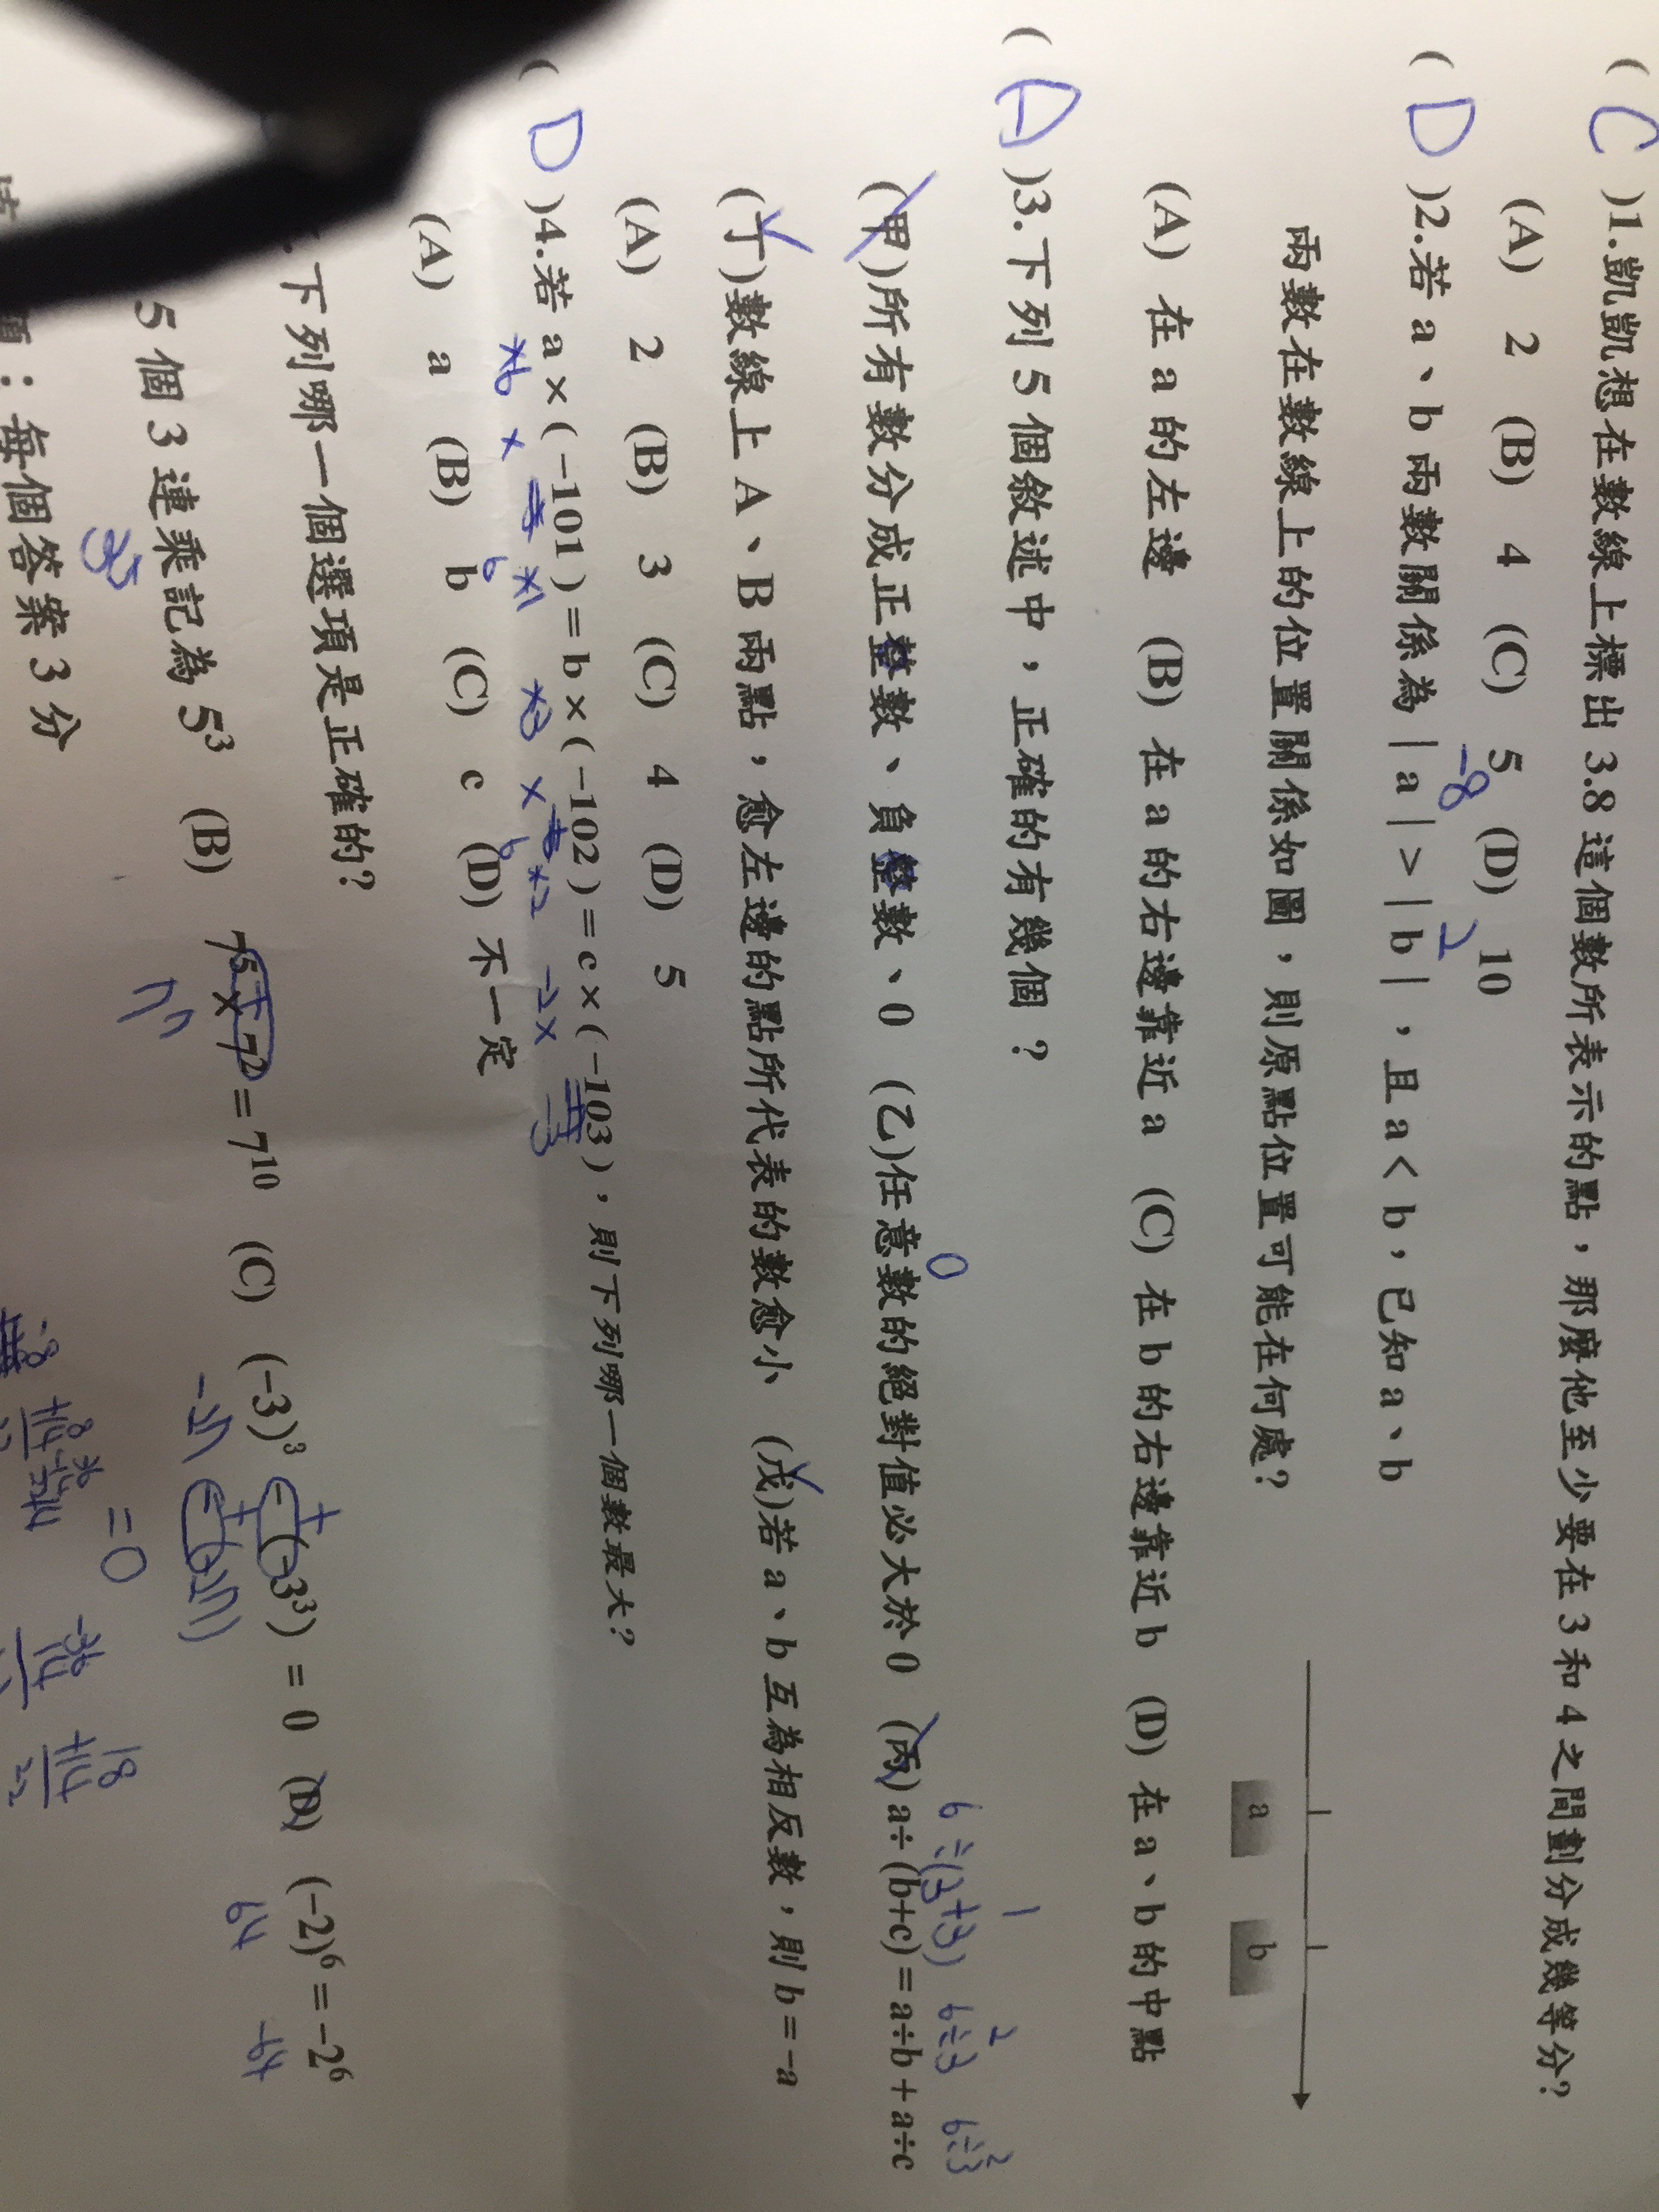 ( C )1.凱凱想在數線上標出 3.8 這個數所表示的點，那麼他至少要在 3 和 4 之間劃分成幾等分?
(A) 2 (B) 4 (C) 5 (D) 10
-8 2
( D )2.若 a、b 兩數關係為 | a | > | b |，且 a < b，已知 a、b
兩數在數線上的位置關係如圖，則原點位置可能在何處?
a b
(A) 在 a 的左邊 (B) 在 a 的右邊靠近 a (C) 在 b 的右邊靠近 b (D) 在 a、b 的中點
( A )3.下列 5 個敘述中，正確的有幾個？
1 2 2
0 6÷(3+3) 6÷3 6÷3
(甲)所有數分成正整數、負整數、0 (乙)任意數的絕對值必大於 0 (丙) a÷(b+c)=a÷b+a÷c
(丁)數線上 A、B 兩點，愈左邊的點所代表的數愈小 (戊)若 a、b 互為相反數，則 b=-a
(A) 2 (B) 3 (C) 4 (D) 5
( D )4.若 a×(-101)=b×(-102)=c×(-103)，則下列哪一個數最大?
(A) a (B) b (C) c (D) 不一定
下列哪一個選項是正確的?
5 個 3 連乘記為 5³ (B) 7⁵×7²=7¹⁰ (C) (-3)³-(-3³)=0 (D) (-2)⁶=-2⁶
3⁵ 7⁷ -27 -(-27) 64 -64
=0
：每個答案 3 分